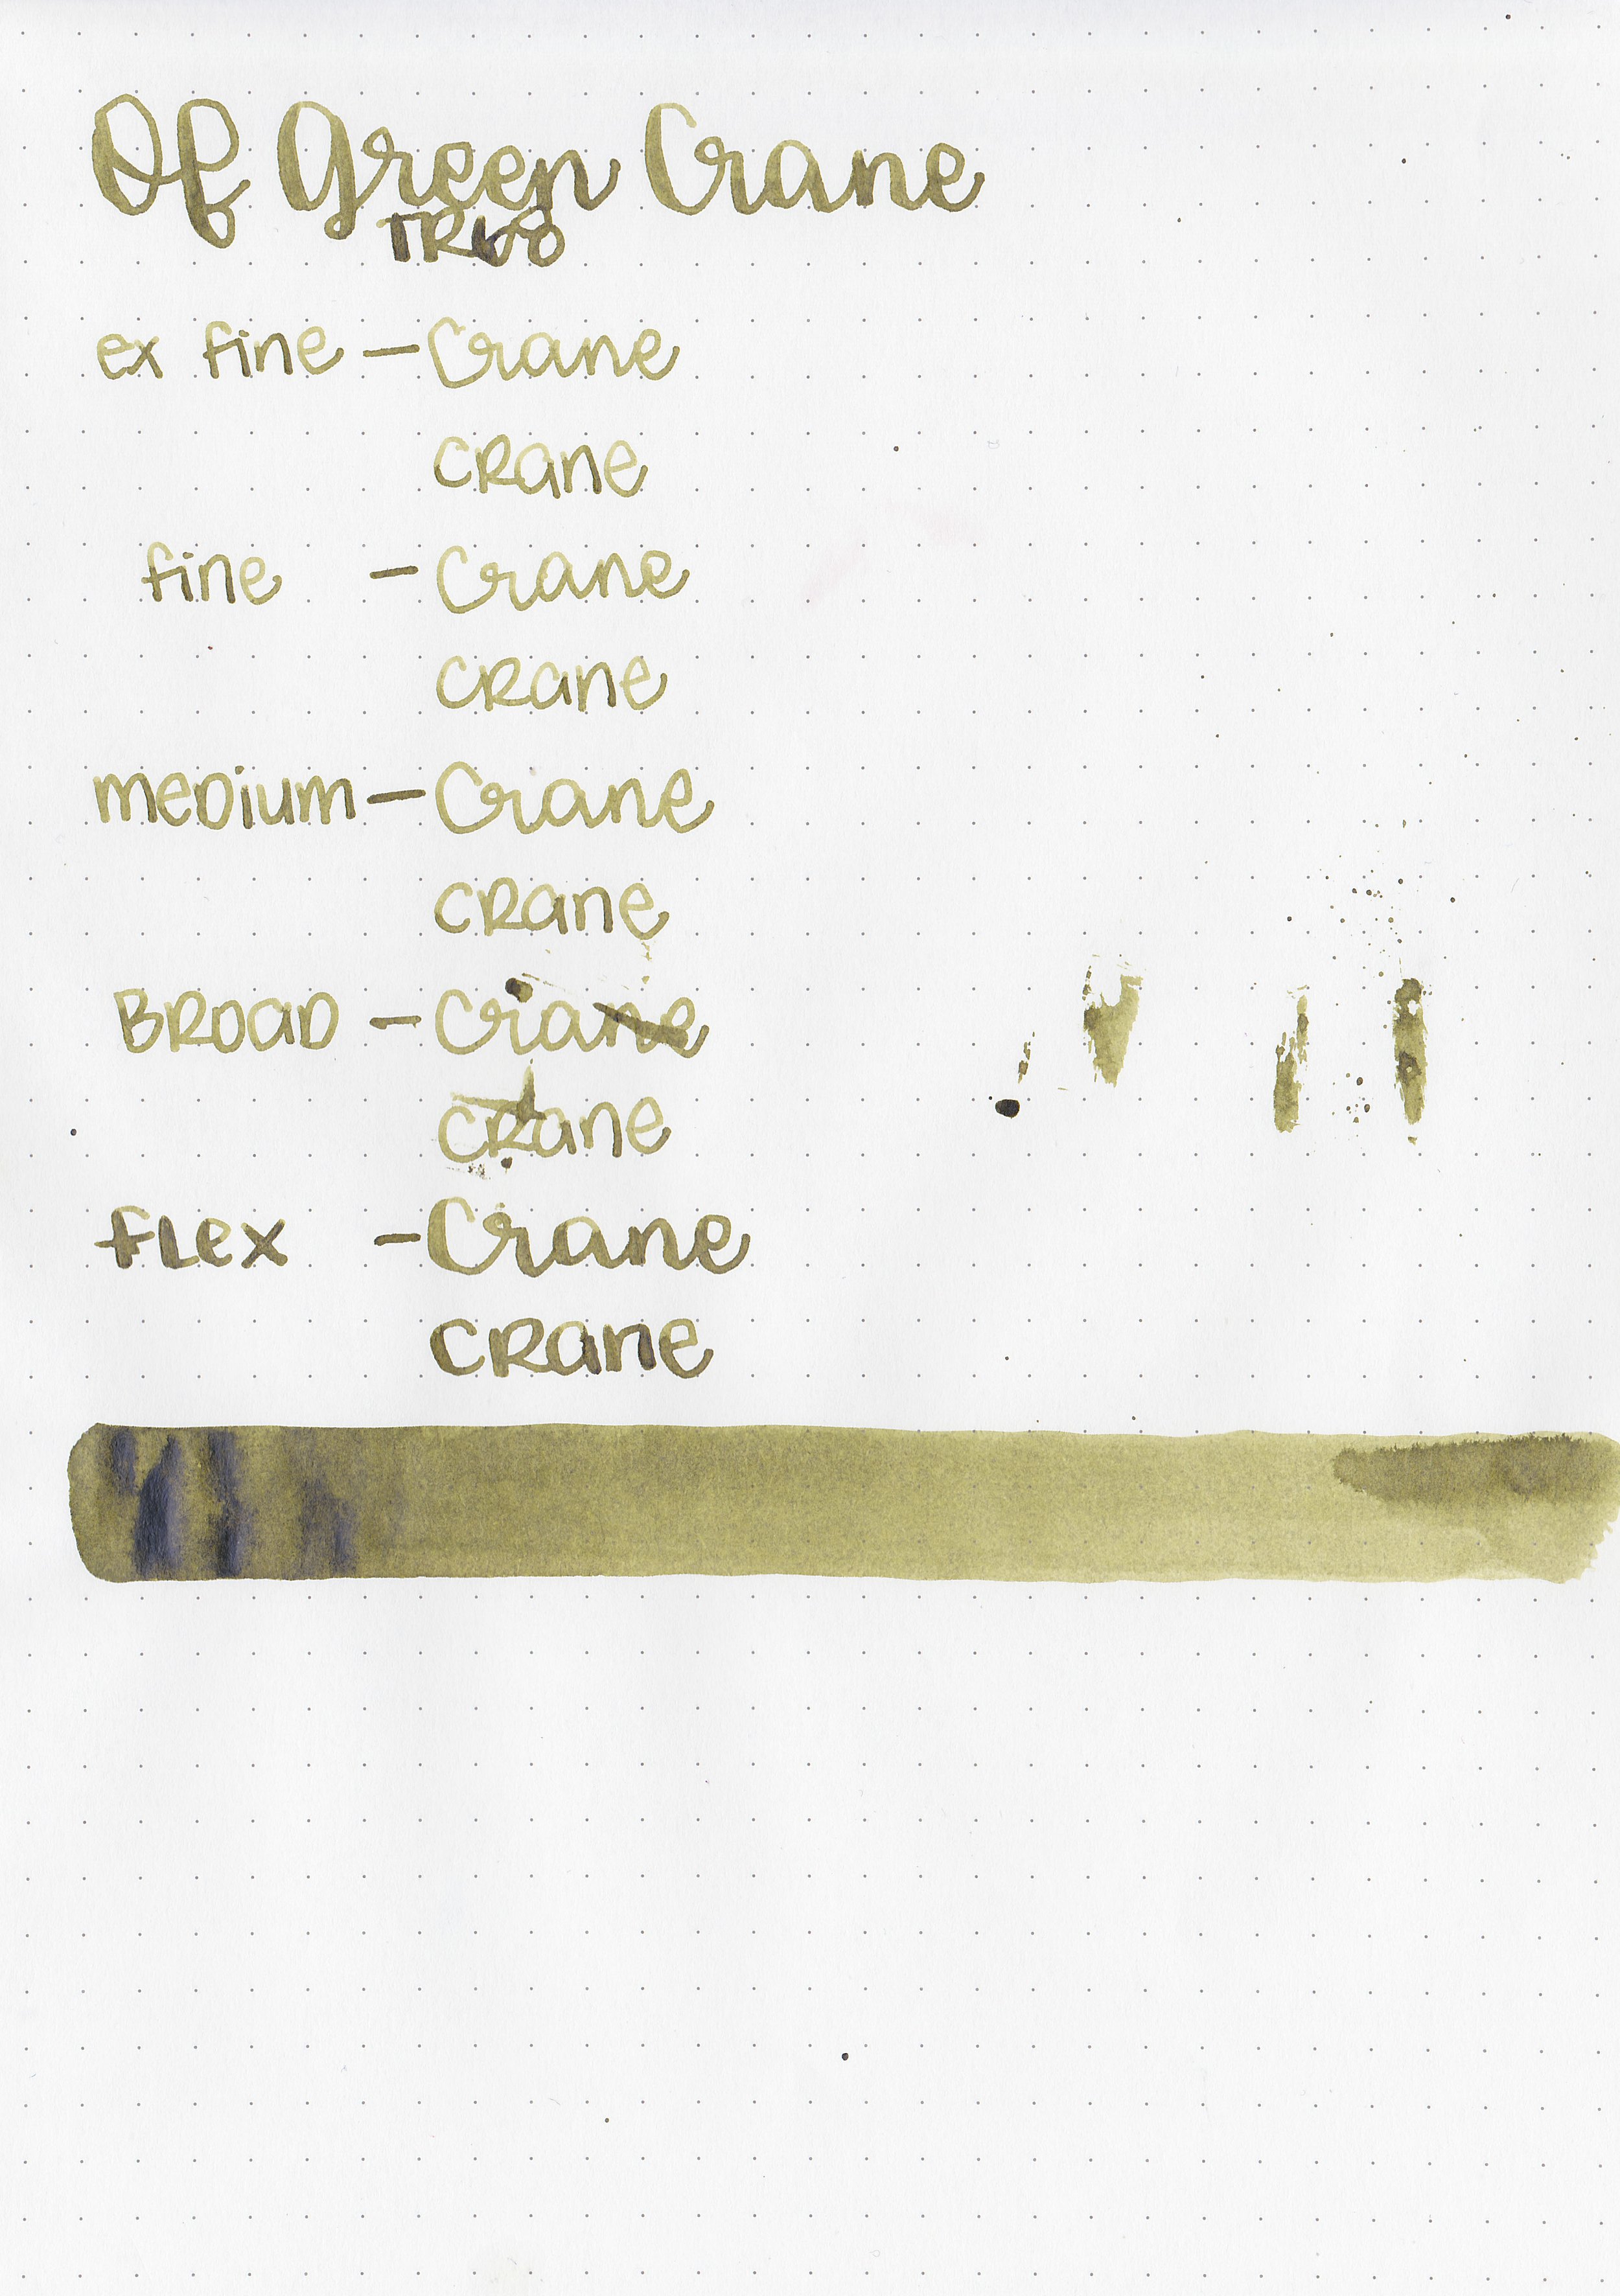 Of Green Crane
ex fine - Crane
crane
fine - Crane
crane
medium - Crane
crane
Broad - Crane
crane
flex - Crane
crane